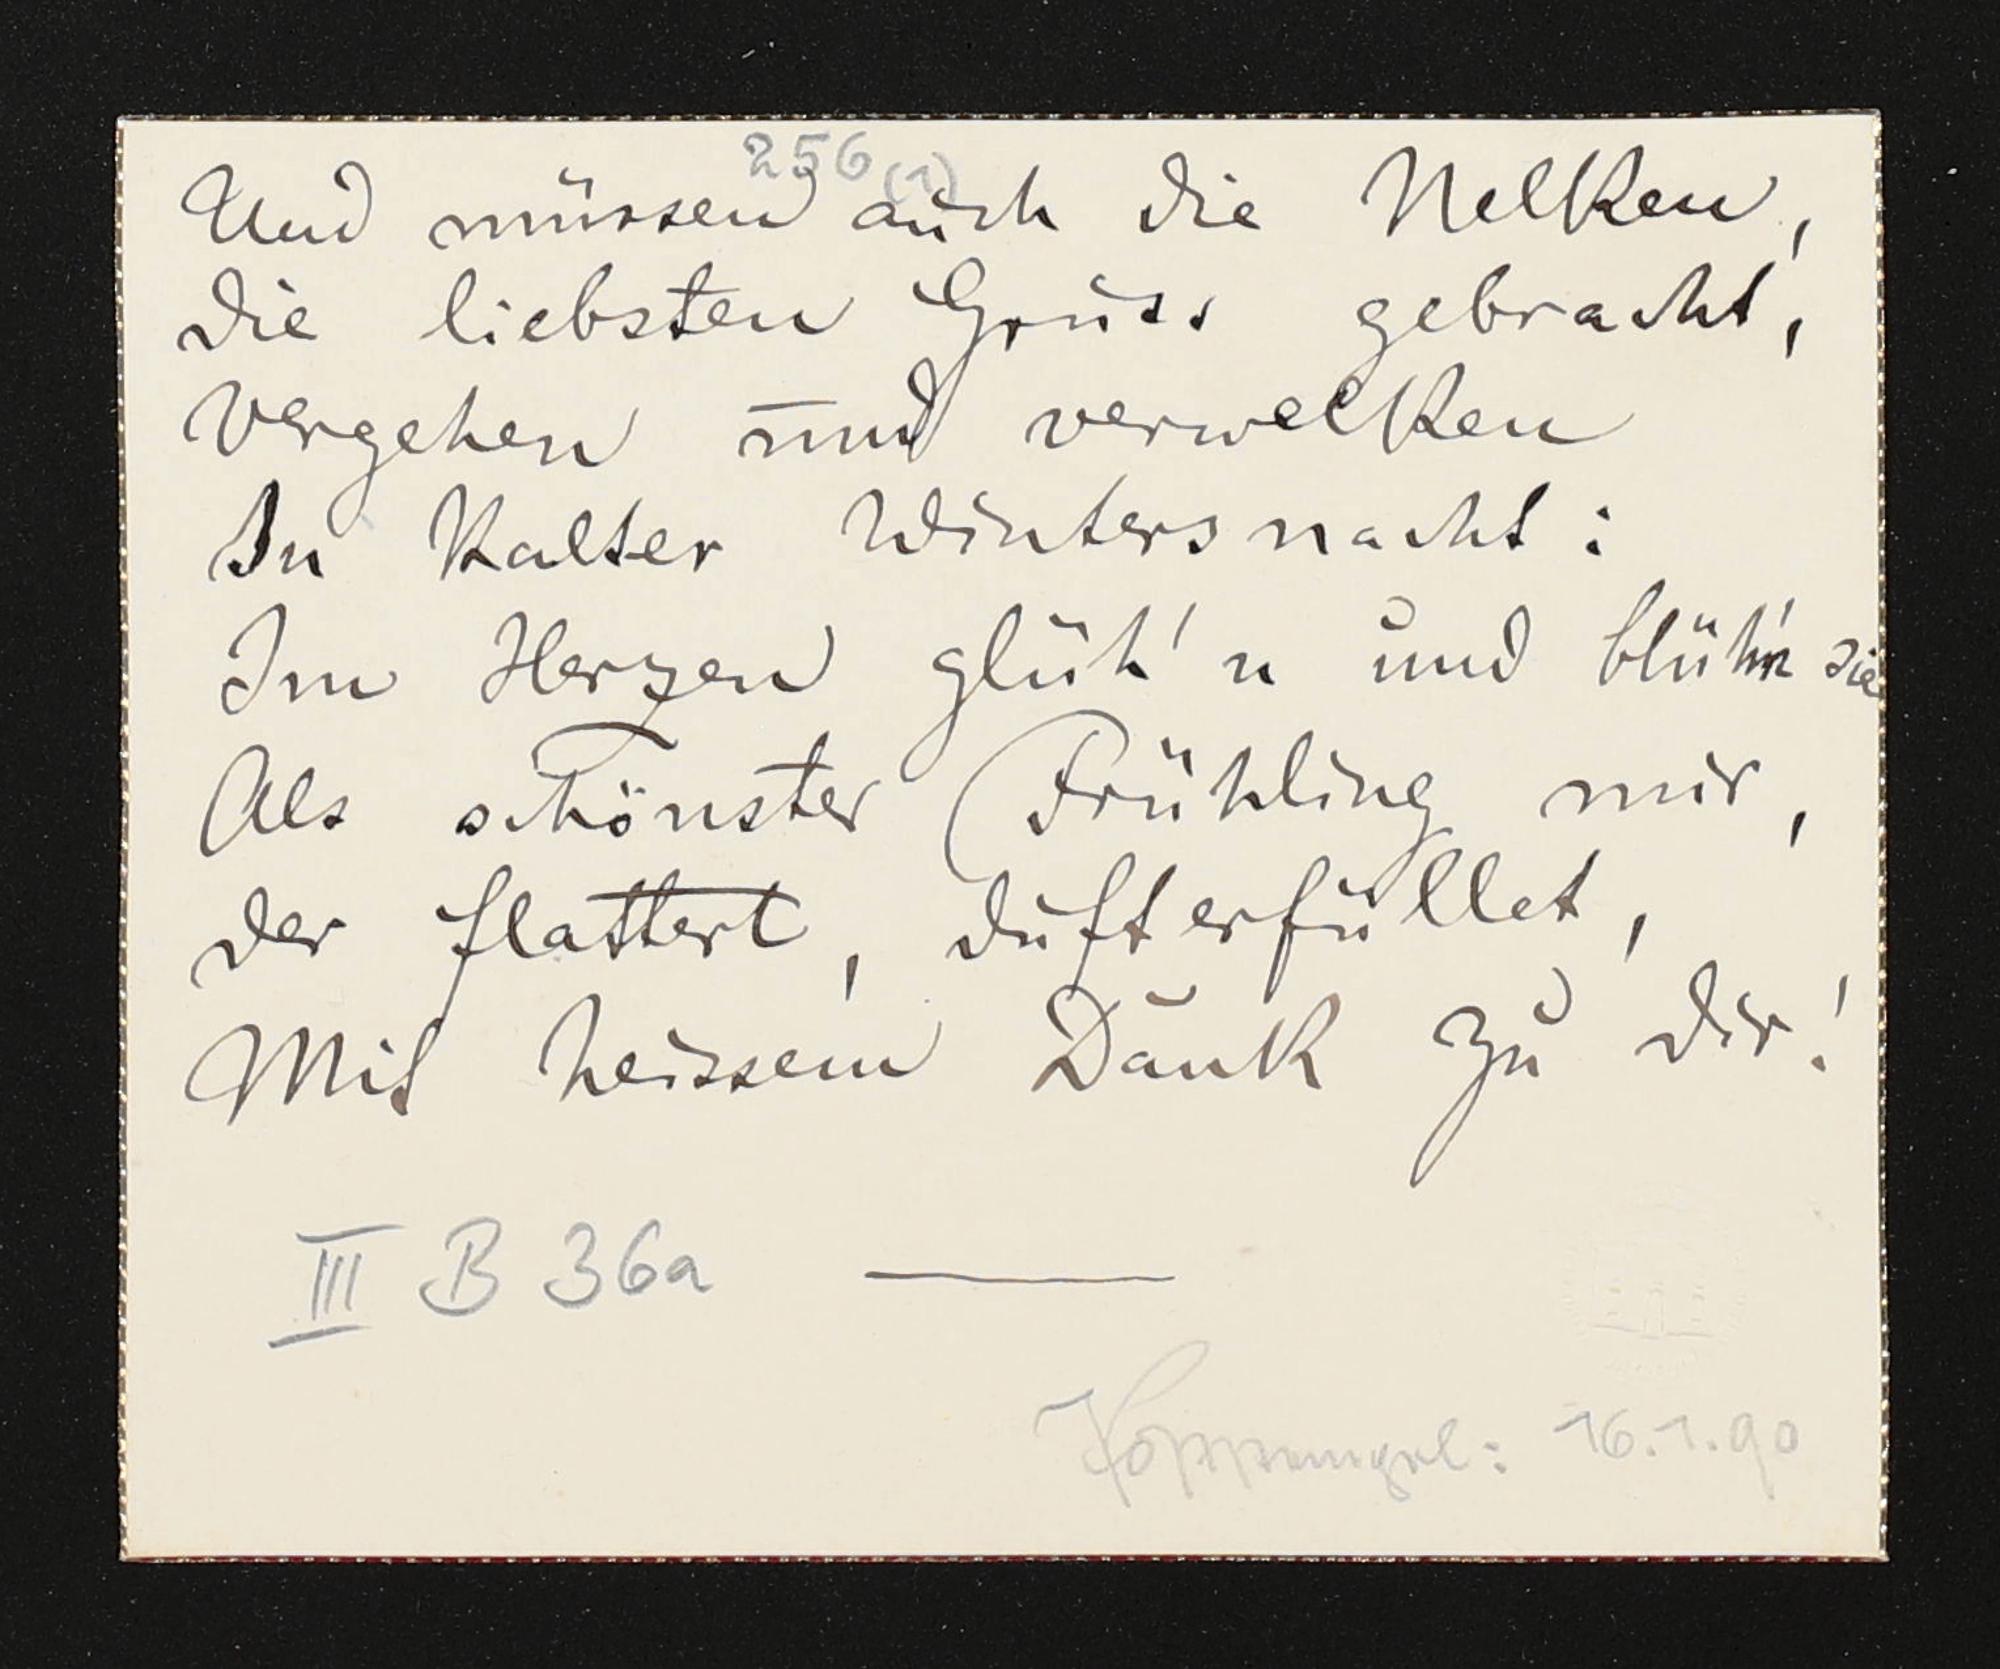 256 (1)
Und müssen auch die Nelken,
die liebsten Gruss gebracht,
Vergehen und verwelken
In kalter Wintersnacht:
Im Herzen glüh'n und blüh'n sie
Als schönster Frühling mir,
der flattert, dufterfüllet,
Mit heissem Dank zu dir!
III B 36a
16.1.90